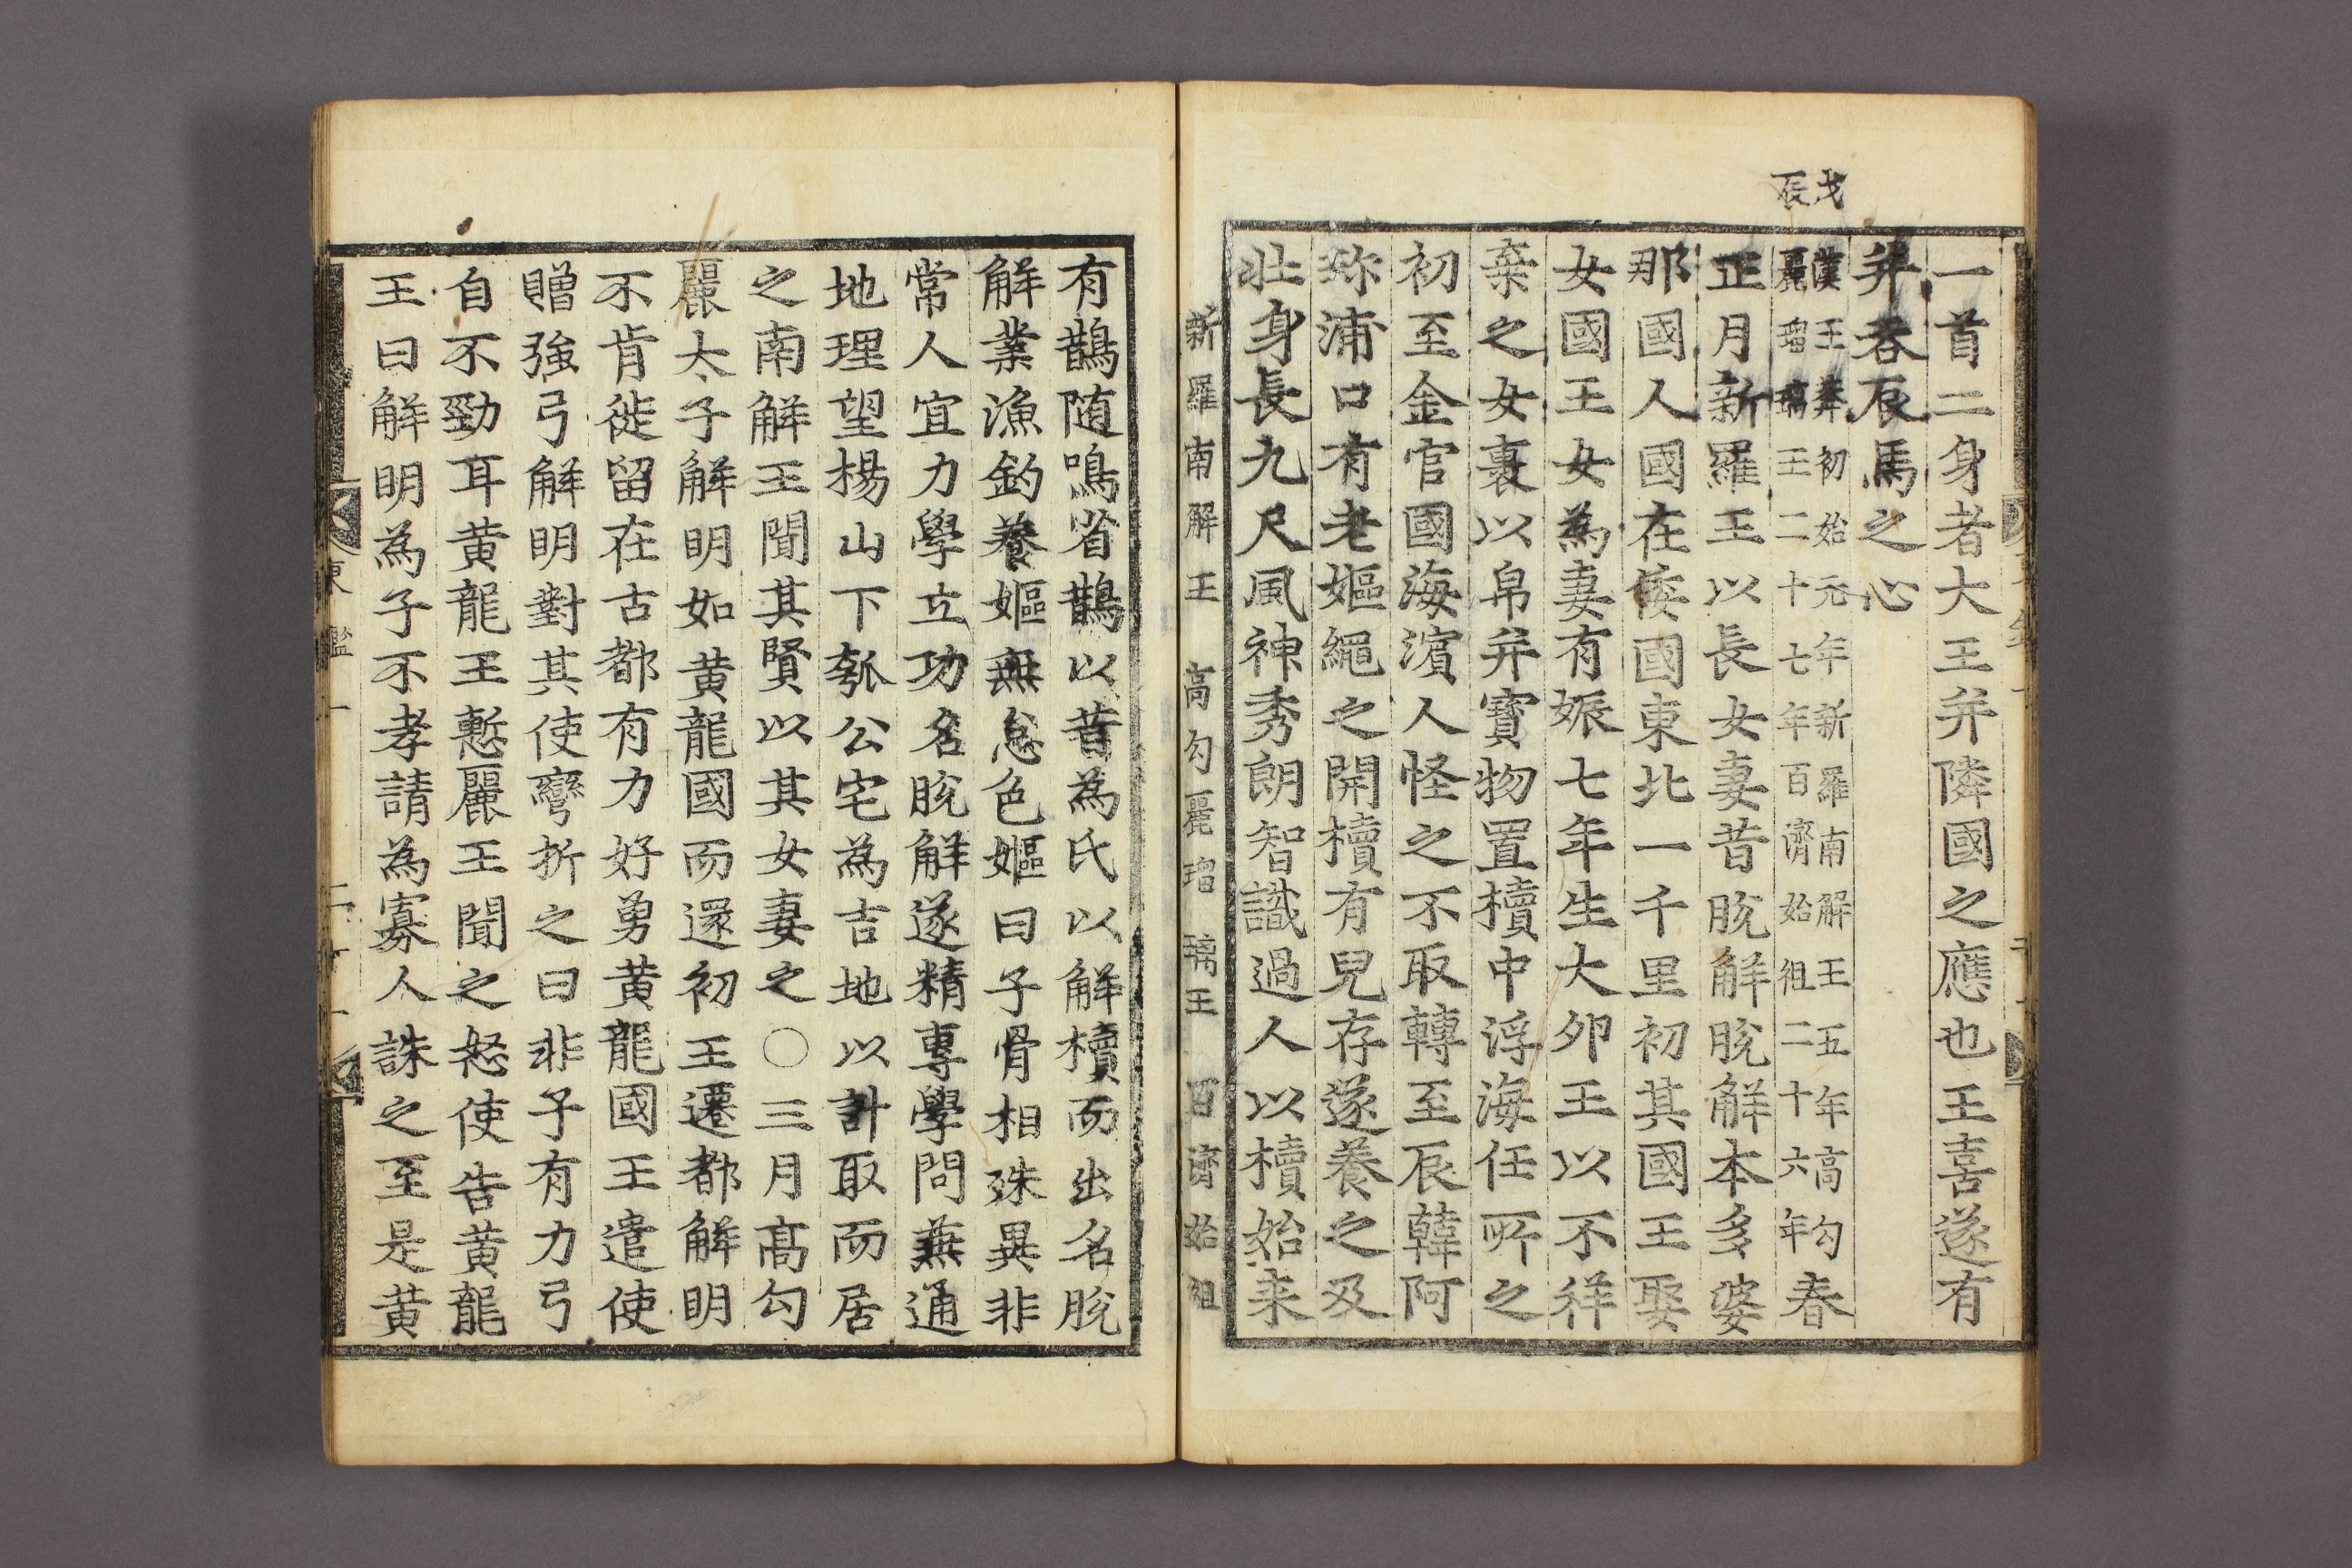 一首二身者大王并隣國之應也王喜遂有
并吞辰馬之心
戊
辰
漢王莽初始元年新羅南解王五年高勾
麗瑠璃王二十七年百濟始祖二十六年
春
正月新羅王以長女妻昔脫解脫解本多婆
那國人國在倭國東北一千里初其國王娶
女國王女為妻有娠七年生大卵王以不祥
棄之女裹以帛并寶物置櫝中浮海任所之
初至金官國海濱人怪之不取轉至辰韓阿
珎浦口有老嫗繩之開櫝有兒存遂養之及
壯身長九尺風神秀朗智識過人以櫝始来
新羅南解王 高勾麗瑠璃王 百濟始祖
有鵲随鳴省鵲以昔為氏以解櫝而出名脫
解業漁釣養嫗無怠色嫗曰子骨相殊異非
常人宜力學立功名脫解遂精專學問兼通
地理望楊山下瓠公宅為吉地以計取而居
之南解王聞其賢以其女妻之〇三月高勾
麗太子解明如黄龍國而還初王遷都解明
不肯徙留在古都有力好勇黄龍國王遣使
贈強弓解明對其使彎折之曰非予有力弓
自不勁耳黄龍王慙麗王聞之怒使告黄龍
王曰解明為子不孝請為寡人誅之至是黄
東鑑一 二十一